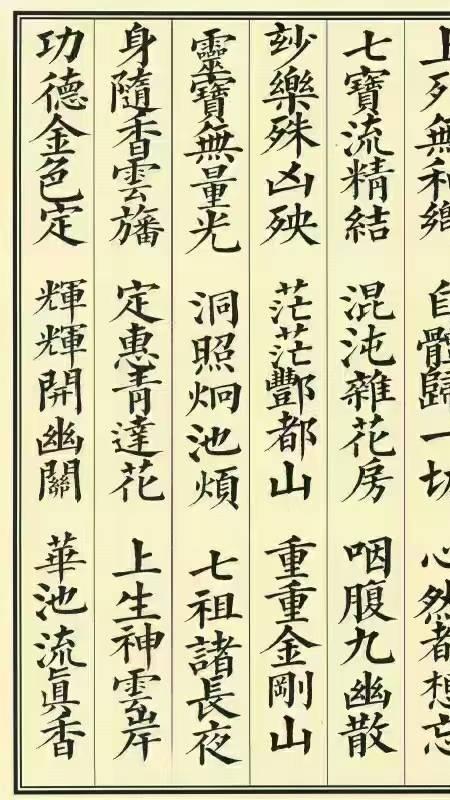 上無 自體歸一切 心然想忘
七寶流精結 混沌雜花房 咽腹九幽散
玅樂殊凶殃 茫茫酆都山 重重金剛山
靈寶無量光 洞照炯池煩 七祖諸長夜
身隨香雲旛 定惠青達花 上生神雲岸
功德金色定 輝輝開幽關 華池流眞香